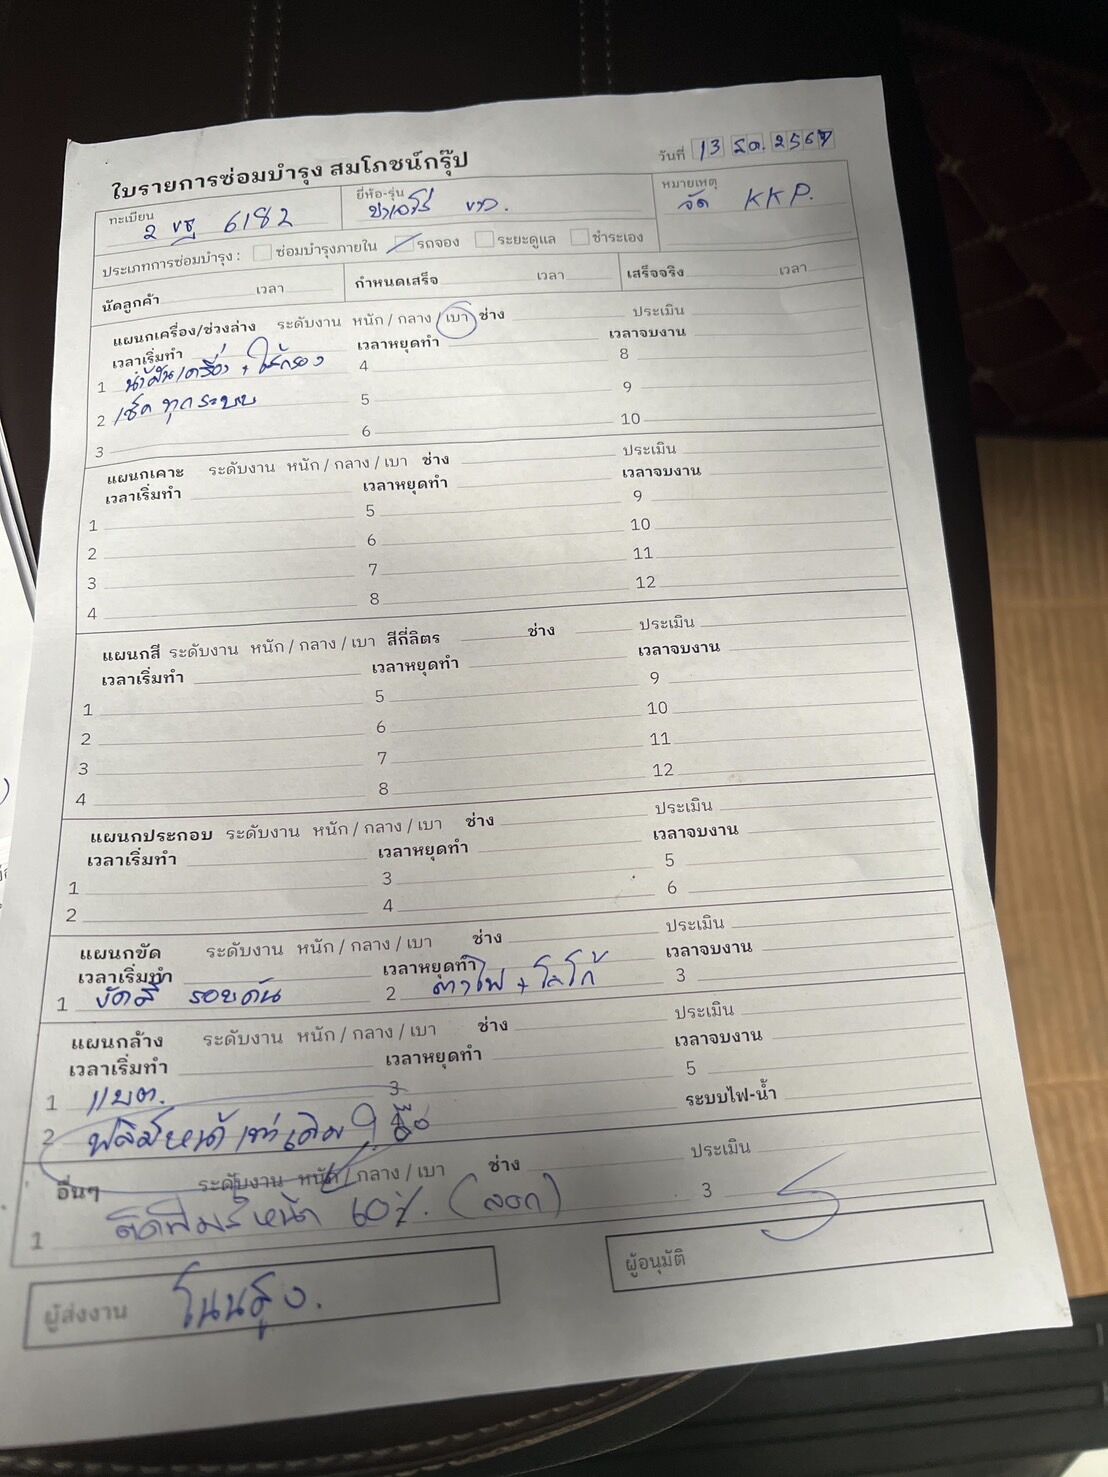 ใบรายการซ่อมบำรุง สมโภชน์กรุ๊ป
วันที่ 13 ธ.ค. 2567
ทะเบียน 2 ขฐ 6182 ยี่ห้อ-รุ่น ปาเจโร่ ขาว. หมายเหตุ จัด KKP.
ประเภทการซ่อมบำรุง : ซ่อมบำรุงภายใน รถจอง ระยะดูแล ชำระเอง
นัดลูกค้า เวลา กำหนดเสร็จ เวลา เสร็จจริง เวลา
แผนกเครื่อง/ช่วงล่าง ระดับงาน หนัก / กลาง / เบา ช่าง ประเมิน
เวลาเริ่มทำ เวลาหยุดทำ เวลาจบงาน
1 น้ำมันเครื่อง + ไส้กรอง 4 8
2 เช็ค ทุกระบบ 5 9
3 6 10
แผนกเคาะ ระดับงาน หนัก / กลาง / เบา ช่าง ประเมิน
เวลาเริ่มทำ เวลาหยุดทำ เวลาจบงาน
1 5 9
2 6 10
3 7 11
4 8 12
แผนกสี ระดับงาน หนัก / กลาง / เบา สีกี่ลิตร ช่าง ประเมิน
เวลาเริ่มทำ เวลาหยุดทำ เวลาจบงาน
1 5 9
2 6 10
3 7 11
4 8 12
แผนกประกอบ ระดับงาน หนัก / กลาง / เบา ช่าง ประเมิน
เวลาเริ่มทำ เวลาหยุดทำ เวลาจบงาน
1 3 5
2 4 6
แผนกขัด ระดับงาน หนัก / กลาง / เบา ช่าง ประเมิน
เวลาเริ่มทำ เวลาหยุดทำ เวลาจบงาน
1 ขัดสี รอบคัน 2 ตาไฟ + โลโก้ 3
แผนกล้าง ระดับงาน หนัก / กลาง / เบา ช่าง ประเมิน
เวลาเริ่มทำ เวลาหยุดทำ เวลาจบงาน
1 แบต. 3 5
2 ฟิล์มหน้า เท่าเดิม ระบบไฟ-น้ำ
อื่นๆ ระดับงาน หนัก / กลาง / เบา ช่าง ประเมิน
1 ติดฟิมส์หน้า 60%. (ลอก) 3
ผู้ส่งงาน โนนสูง. ผู้อนุมัติ